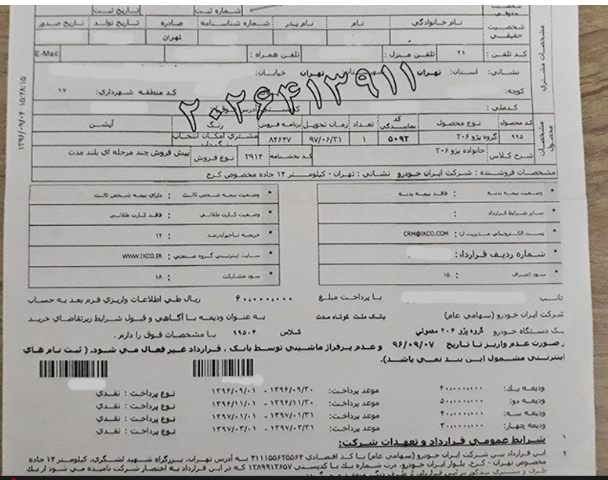 شماره ثبت : تاریخ ثبت :
نام خانوادگی نام نام پدر شماره شناسنامه صادره تاریخ تولد تاریخ صدور
شخصیت حقیقی تهران
مشخصات مشتری
کد تلفن : ۲۱ تلفن منزل : تلفن همراه : E-Mail:
نشانی: استان: تهران تهران خیابان:
کوچه: کد منطقه شهرداری: ۱۷
کدملی :
۲۰۲۶۴۱۳۹۱۱
۱۳۹۶/۰۹/۰۲ ۱۵:۲۸:۱۵
مشخصات محصول
کد محصول نوع محصول کد نمایندگی تعداد زمان تحویل برنامه فروش رنگ آپشن
۱۱۵ گروه پژو ۲۰۶ ۵۰۹۲ ۱ ۹۷/۰۶/۳۱ ۸۴۶۴۷ مشتری امکان انتخاب
شرح کلاس خانواده پژو ۲۰۶ کد بخشنامه ۳۹۱۲ نوع فروش پیش فروش چند مرحله ای بلند مدت
مشخصات فروشنده : شرکت ایران خودرو نشانی : تهران - کیلومتر ۱۴ جاده مخصوص کرج
وضعیت بیمه بدنه : فاقد بیمه بدنه
سایر شرایط قرارداد :
پست الکترونیکی مدیریت : CRM@IKCO.COM
شماره ردیف قرارداد:
سود انصراف : ۱۵
وضعیت بیمه شخص ثالث : دارای بیمه شخص ثالث
وضعیت کارت طلائی : فاقد کارت طلائی
جریمه تاخیر/درصد : ۱۲
سایت اینترنتی گروه صنعتی : WWW.IKCO.IR
سود مشارکت : ۱۸
با پرداخت مبلغ ۶۰،۰۰۰،۰۰۰ ریال طی اطلاعات واریزی فرم بعد به حساب
شرکت ایران خودرو (سهامی عام) بانک ملت کوتاه مدت به عنوان ودیعه با آگاهی و قبول شرایط زیرتقاضای خرید
یک دستگاه خودرو گروه پژو ۲۰۶ معمولی کلاس ۹۹۵۰۴ با مشخصات فوق را دارم .
در صورت عدم واریز تا تاریخ ۹۶/۰۹/۰۷ و عدم پرفراژ ماشینی توسط بانک ، قرارداد غیر فعال می شود. ( ثبت نام های
اینترنتی مشمول این بند نمی باشد).
ودیعه یک: ۶۰،۰۰۰،۰۰۰ موعد پرداخت: ۱۳۹۶/۰۹/۳۰ - ۱۳۹۶/۰۹/۰۱ نوع پرداخت : نقدی
ودیعه دو: ۵۰،۰۰۰،۰۰۰ موعد پرداخت: ۱۳۹۶/۱۱/۳۰ - ۱۳۹۶/۱۱/۰۱ نوع پرداخت : نقدی
ودیعه سه: ۴۰،۰۰۰،۰۰۰ موعد پرداخت: ۱۳۹۷/۰۱/۳۱ - ۱۳۹۷/۰۱/۰۱ نوع پرداخت : نقدی
ودیعه چهار: ۳۰،۰۰۰،۰۰۰ موعد پرداخت: ۱۳۹۷/۰۳/۳۱ - ۱۳۹۷/۰۳/۰۱ نوع پرداخت : نقدی
۱ شرایط عمومی قرارداد و تعهدات شرکت:
۲ این قرارداد بین شرکت ایران خودرو (سهامی عام) با کد اقتصادی ۴۱۱۱۵۵۶۳۵۵۶۴ به آدرس تهران، بزرگراه شهید لشگری، کیلومتر ۱۴ جاده
مخصوص تهران - کرج، بلوار ایران خودرو، درب شماره یک با کدپستی ۱۳۸۹۹۱۳۶۵۷ که در این قرارداد به اختصار شرکت نامیده می شود از یک